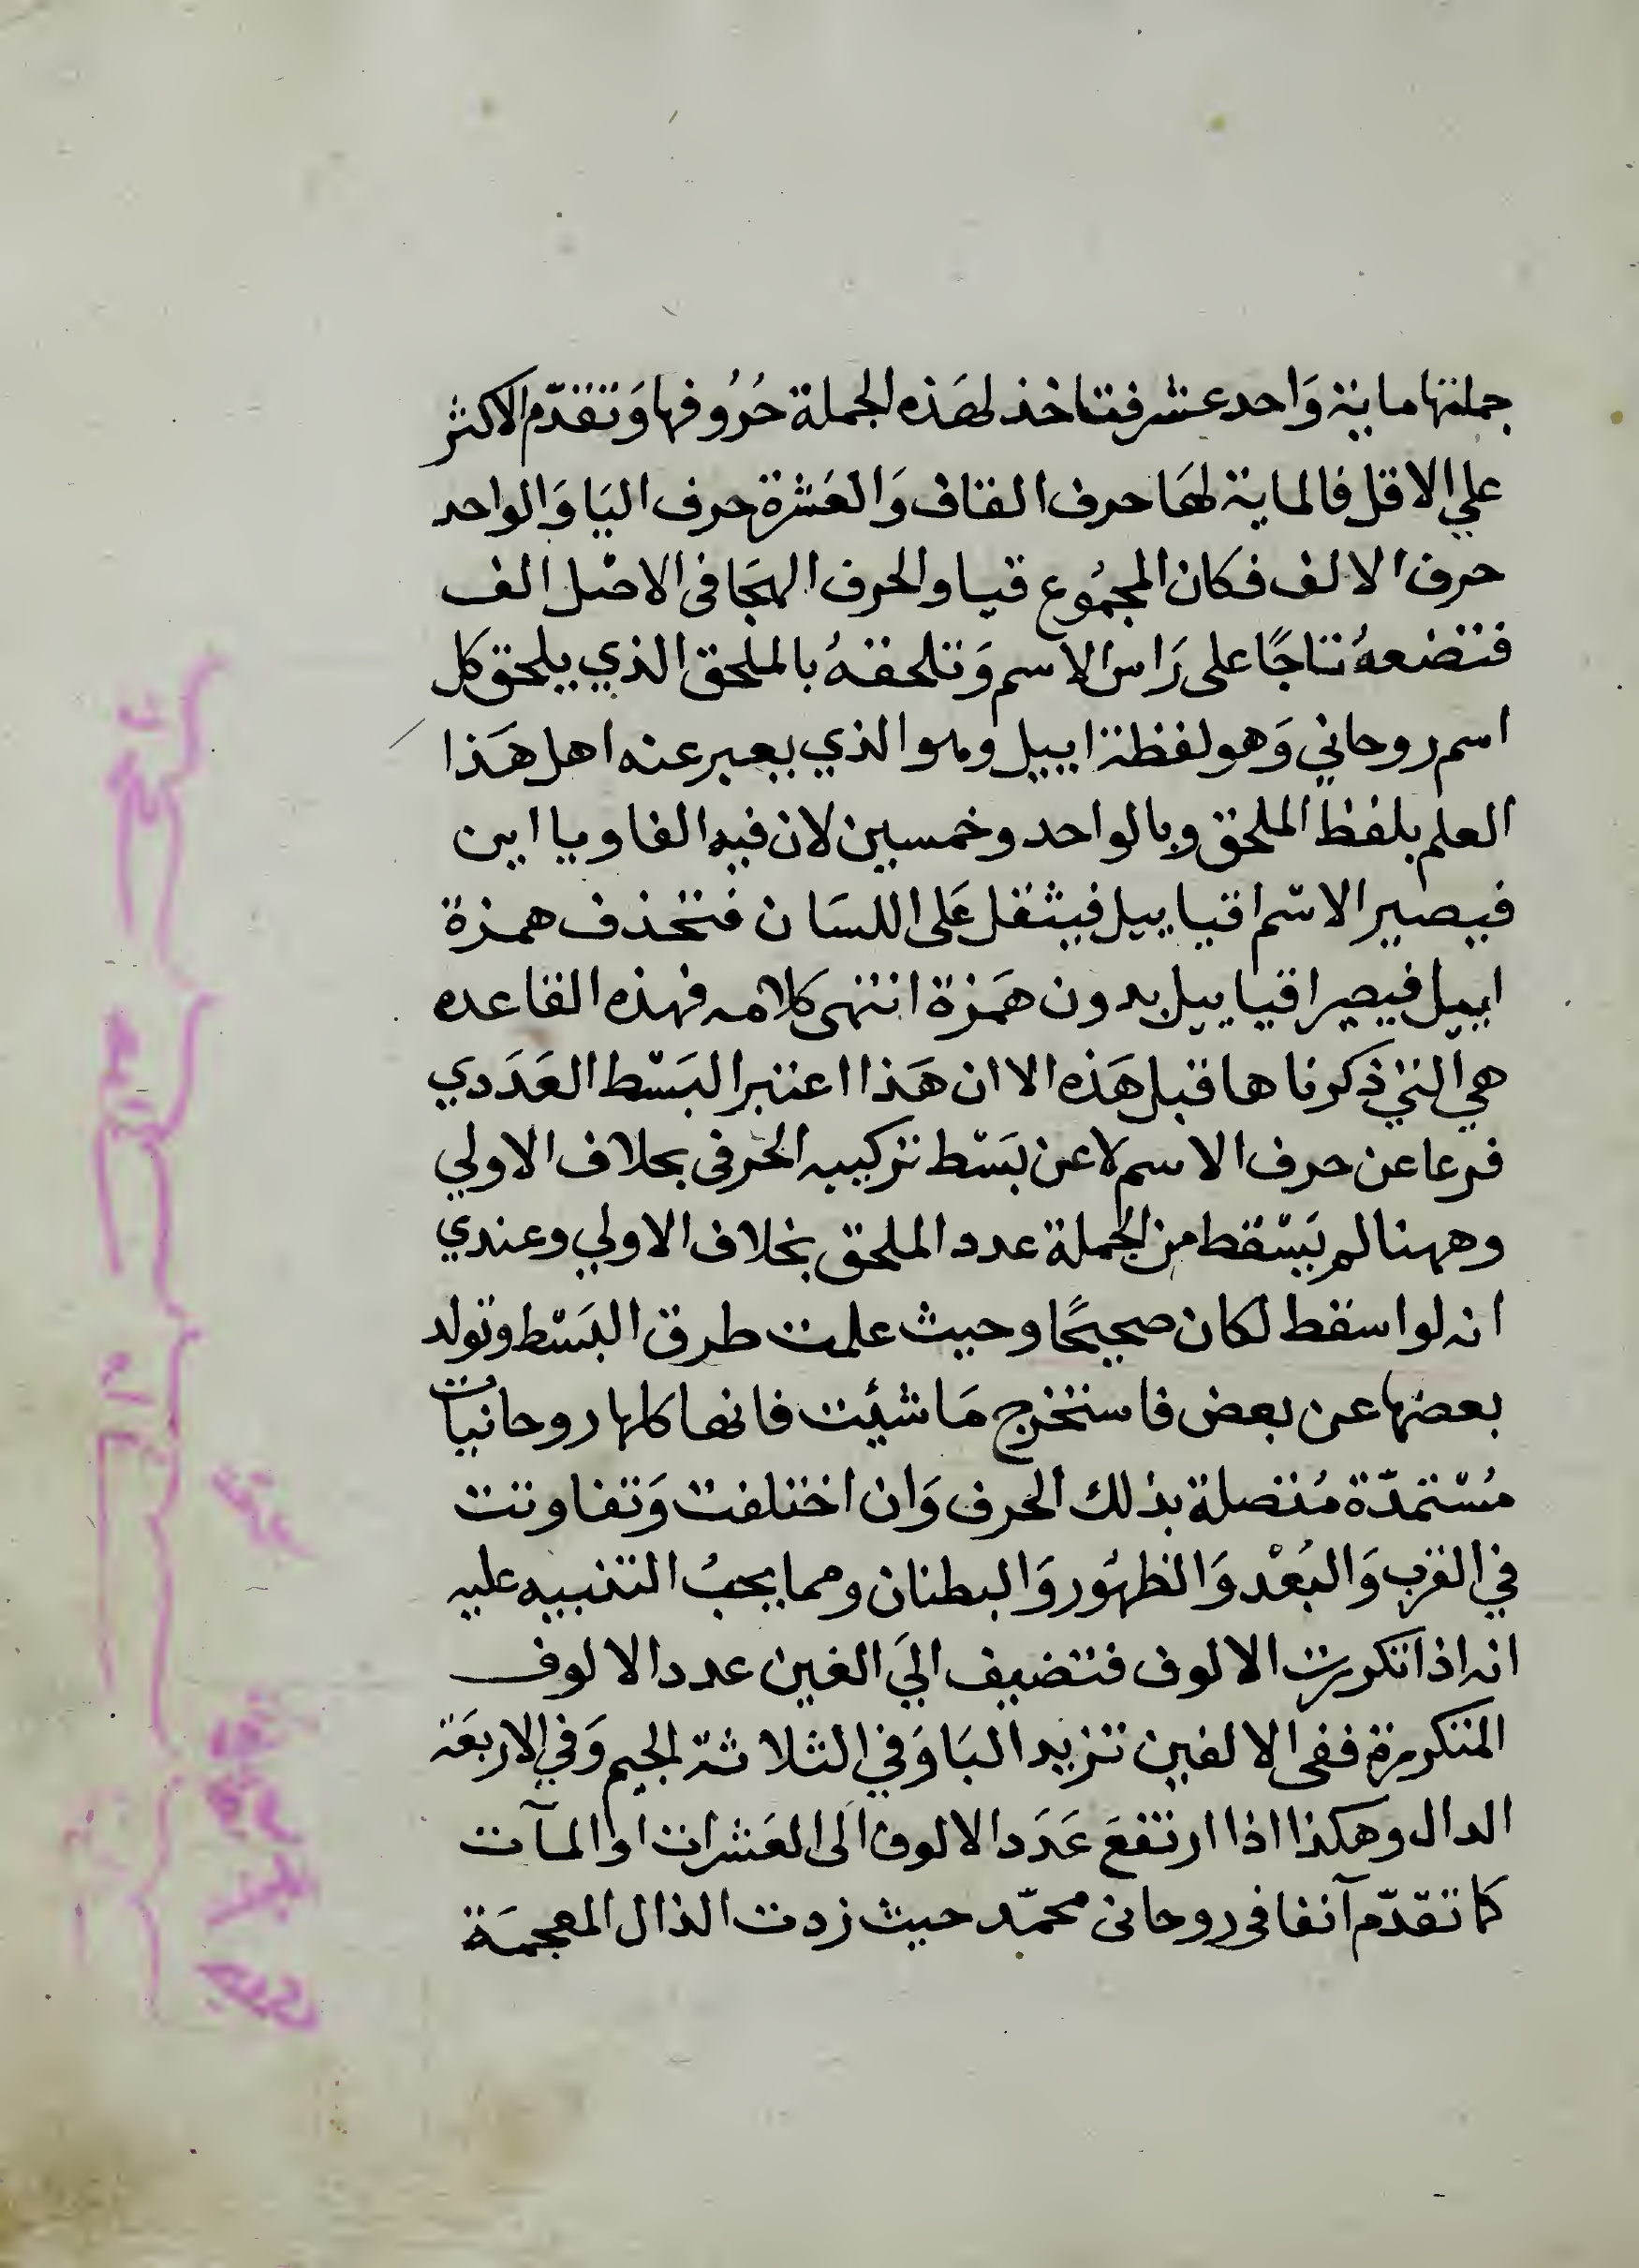 جملتها ماية وَاحد عشر فتاخذ لهَذه الجملة حُرُوفها وَتقدّم الاكثر
علي الاقل فالماية لهَا حرف القاف وَالعَشرة حرف اليَا وَالواحد
حرف الالف فكان المجمُوع قيا والحرف الهجَا في الاصْل الف
فتضعهُ تاجًا على رَاس الاسم وَتلحقهُ بالملحق الذي يلحق كل
اسم روحاني وَهو لفظة اييل وهو الذي يعبر عنه اهل هَذا
العلم بلفظ الملحق وبالواحد وخمسين لان فيه الفا ويا اين
فيصير الاسْم اقيا ييل فيثقل عَلى اللسَان فتحذف همزة
اييل فيصير اقيا ييل بدون هَمزة انتهى كلامه فهذه القاعده
هي التي ذكرناها قبل هَذه الا ان هَذا اعتبر البَسْط العَدَدي
فرعا عن حرف الاسم لا عن بَسْط تركيبه الحَرفى بحلاف الاولي
وههنا لم يَسْقط من الجملة عدد الملحق بخلاف الاولي وعندي
انه لو اسقط لكان صحيحًا وحيث علمت طرق البَسْط وتولد
بعضها عن بعض فاستخرج مَا شئت فانها كلها روحانيات
مُسْتمدّة مُتصلة بذلك الحرف وَان اختلفت وَتفاوتت
في القرب وَالبُعْد وَالظهُور وَالبطنان ومما يجبُ التنبيه عليه
انه اذا تكررت الالوف فتضيف اليَ الغين عدد الالوف
المتكررة ففى الالفين تزيد البَا وَفي الثلاثة الجيم وَفي الاربعَة
الدال وهكذا اذا ارتفعَ عَدَد الالوف الى العَشرات او المآت
كما تقدّم آنفا في روحانى محمّد حيث زدت الذال المعجمَة